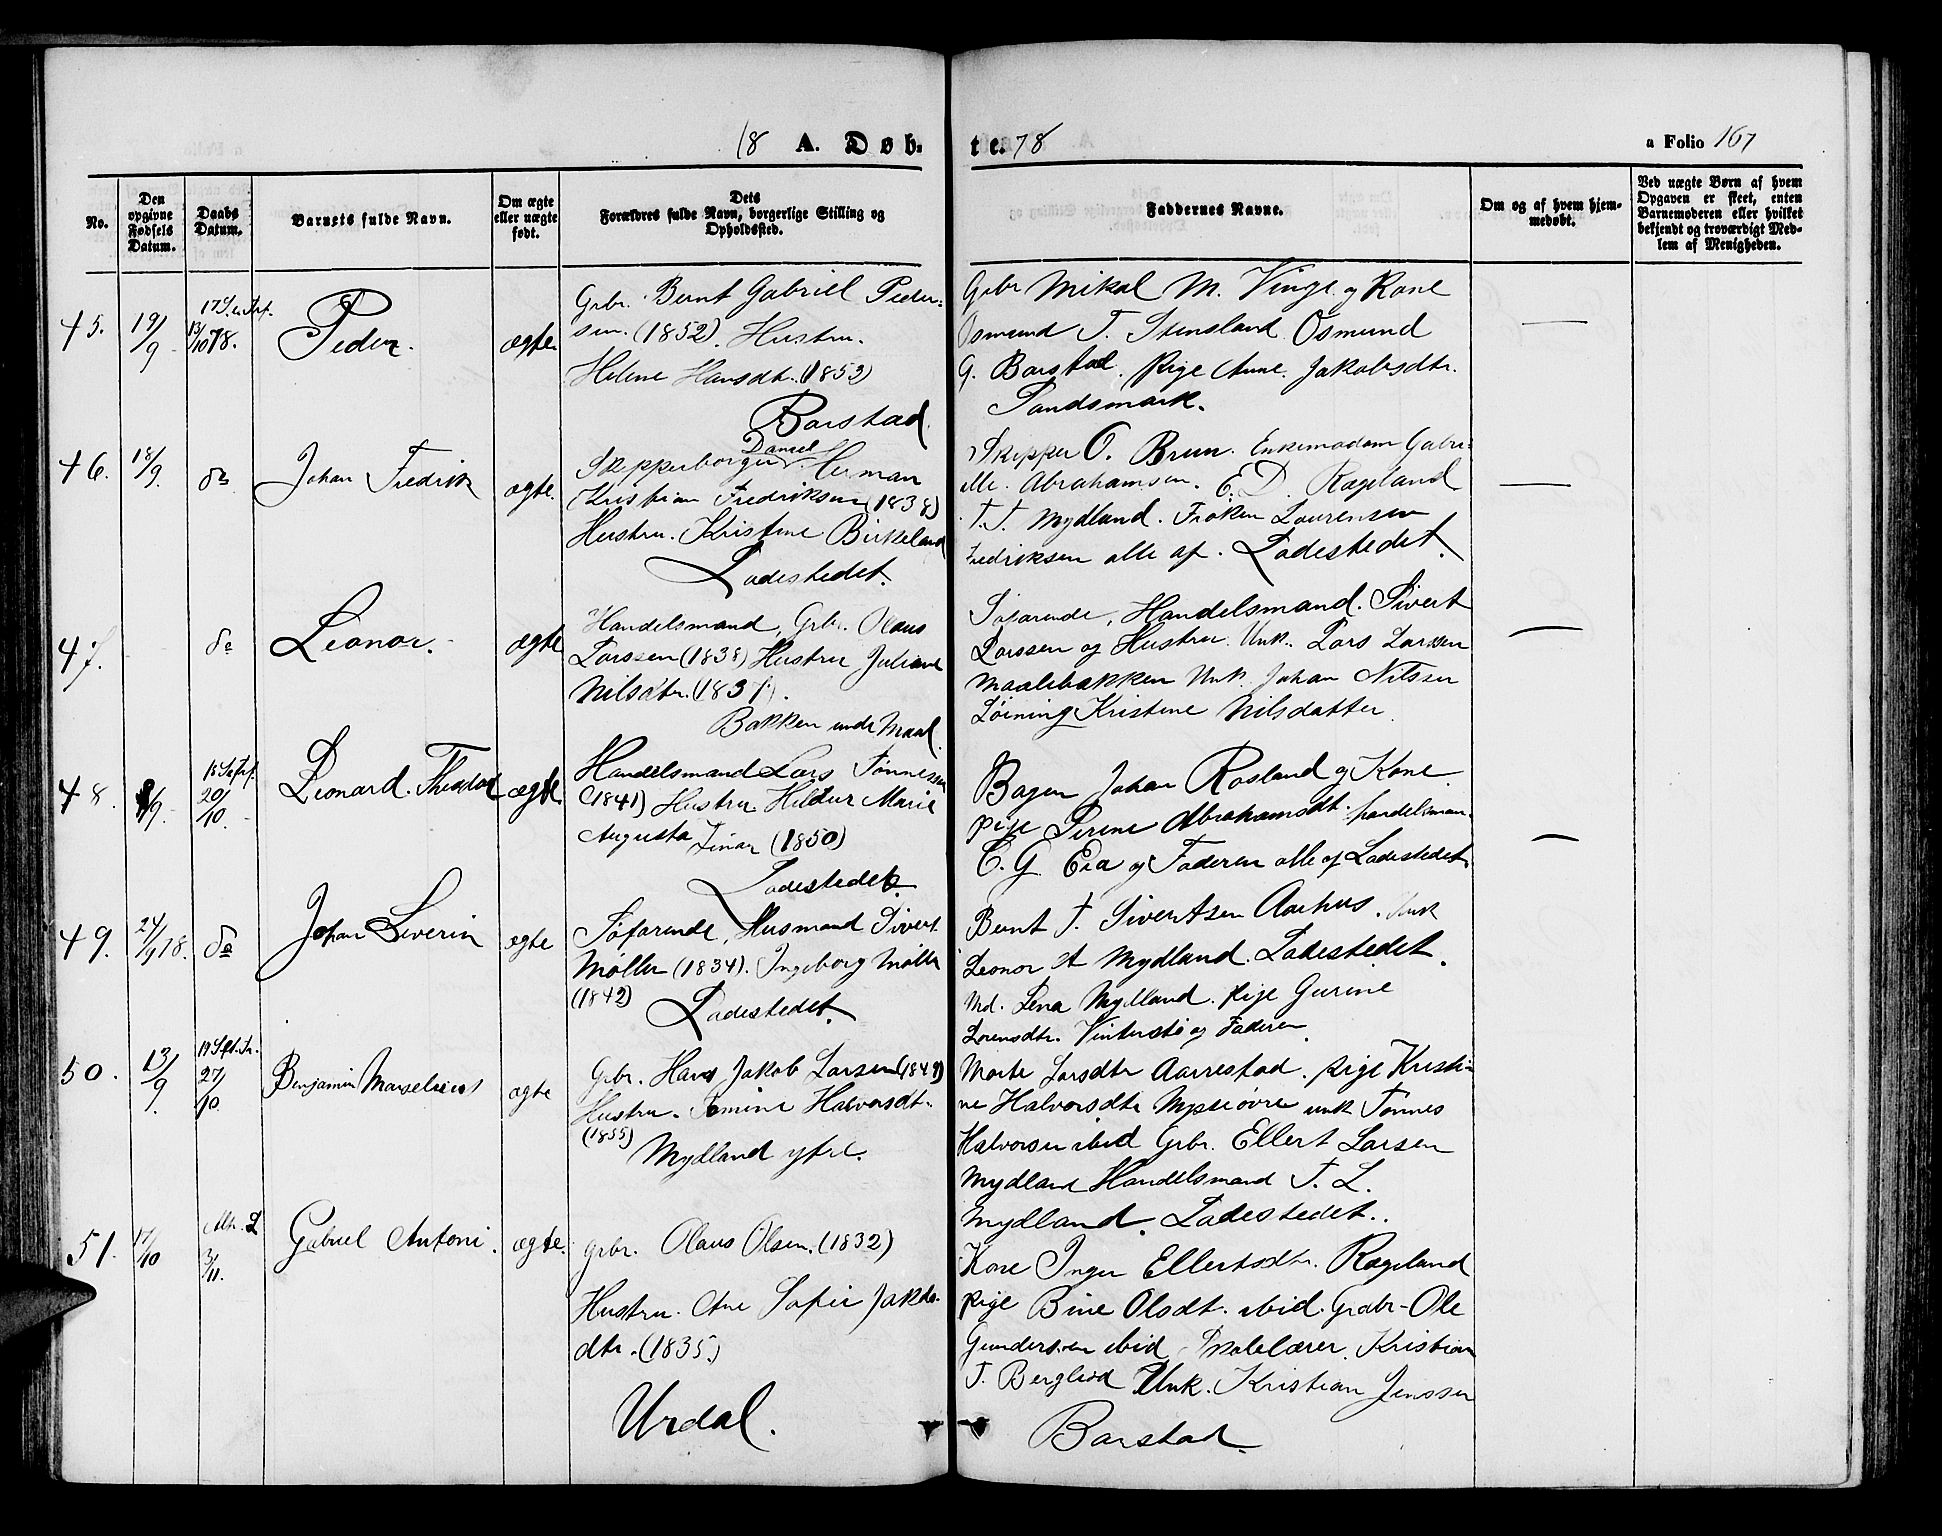 18 A. Døb-
te. 78
a Folio 167
No.
Den opgivne Fødsels Datum.
Daabs Datum.
Barnets fulde Navn.
Om ægte eller uægte født.
Dets Forældres fulde Navn, borgerlige Stilling og Opholdssted.
Faddernes Navne.
Om og af hvem hjemmedøbt.
Ved uægte Børn af hvem Opgaven er skeet, enten Barnemoderen eller hvilket bekjendt og troværdigt Medlem af Menigheden.
45. 19/9 17 S. e. Tref. 13/10 78. Peder. ægte
Grbr. Bernt Gabriel Peder-
sen. (1852). Hustru.
Helene Hansdt. (1853)
Barstad.
Grbr Mikal M. Vinge og Kone
Osmund T. Stensland Osmund
G. Barstad. Pige Anne Jakobsdtr.
Sandsmark.
46. 18/9. do Johan Fredrik ægte.
Skipperborger Daniel Herman
Kristian Fredriksen (1838)
Hustru. Kristine Birkeland
Ladestedet.
Skipper O. Brun. Enkemadam Gabri-
elle. Abrahamsen. E. D. Rægeland
T. T. Mydland. Frøken Laurensen
Fredriksen alle af. Ladestedet.
47. do Leonor. ægte
Handelsmand, Grbr. Olaus
Larssen (1838) Hustru Juliane
Nilsdtr. (1837).
Bakken under Maal.
Søfarende, Handelsmand. Sivert
Larssen og Hustru. Unk. Lars Larssen
Maalebakken Unk. Johan Nilssen
Løining Kristine Nilsdatter
48. 9. 18 S. e. Tref. 20/10. Leonard. Theodor ægte
Handelsmand Lars Tønnessen
(1841) Hustru Hildur Marie
Augusta (1850)
Ladestedet.
Bager Johan Rosland og Kone
Pige Serine Abrahamsdt. handelsman.
C. G. Eia og Faderen alle af Ladestedet
49. 24/9 78. do Johan Severin ægte
Søfarende, Husmand Sivert
Møller (1834). Ingeborg Møller
(1842)
Ladestedet.
Bernt T. Sivertsen Aarhus. Unk
Leonor A Mydland. Ladestedet.
Md. Lena Mydland. Pige Gurine
Lorensdtr. Vinterstø og Faderen.
50. 13/9. 19 S. ft. Tr. 27/10 Benjamin Marselius ægte
Grbr. Hans Jakob Larsen (1849)
Hustru. Tomine Halvorsdt.
(1855)
Mydland
Marte Larsdtr Aarrestad. Pige Kristi-
ne Halvorsdtr Mysse øvre unk Tønnes
Halvorsen ibid Grbr. Ellert Larsen
Mydland Handelsmand T. L.
Mydland. Ladestedet.
51. 17/10 Alh. D 3/11. Gabriel Antoni. ægte.
Grbr. Olaus Olsen. (1832)
Hustru. Ane Sofie Jakobs-
dtr. (1835.)
Urdal.
Kone Inger Ellertsdtr. Rægeland
Pige Bine Olsdt. ibid. Grbr. Ole
Gundersen ibid Skolelærer. Kristian
T. Berglied Unk. Kristian Jenssen
Barstad.